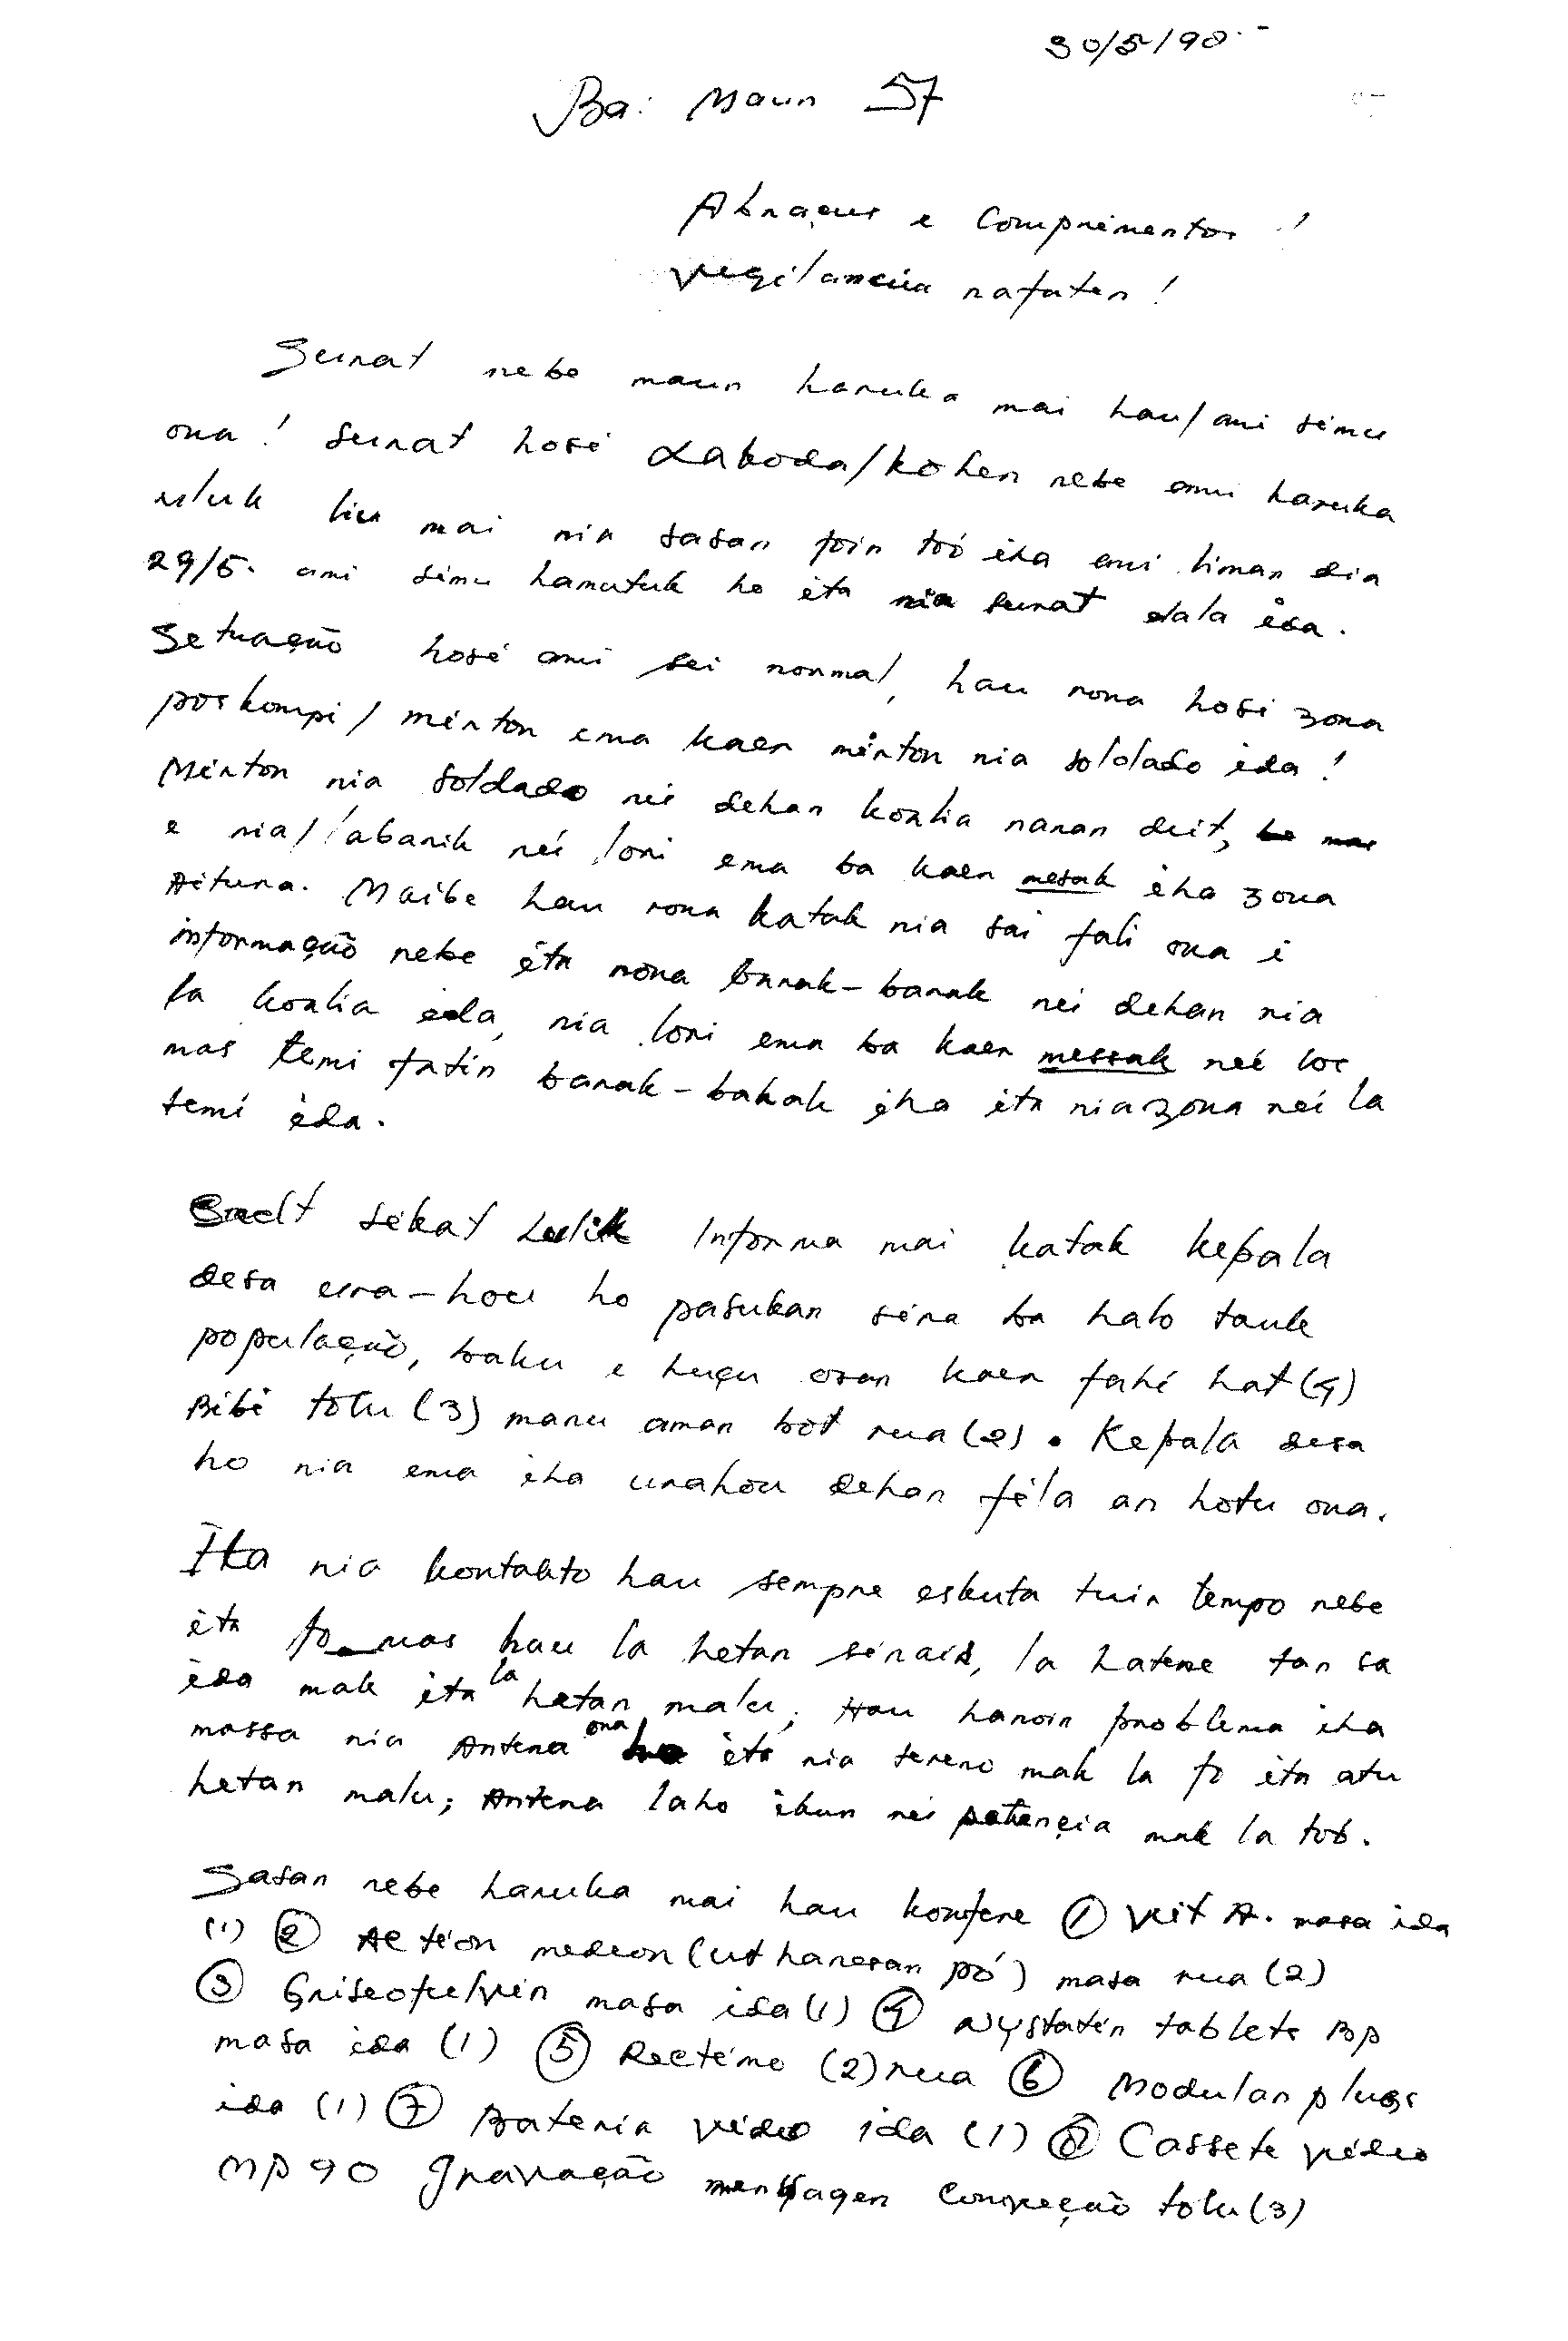 30/5/98.-
Ba: Maun 57
Abraçus e Comprimentos !
Vigilancia nafaten !
Surat nebe maun haruka mai hau/ami simu
ona ! Surat hosi Laboda/kohen nebe ami haruka
uluk liu mai nia sasan foin toó iha ami liman dia
29/5. ami simu hamutuk ho ita nia surat dala ida.
Setuação hosi ami sei normal, hau rona hosi zona
poskompi/mirton ema kaer mirton nia soldado ida !
Mirton nia soldado nei dehan koalia naran deit,
e nia/labarik nei lori ema ba kaer mesak iha zona
Aituna. Maibe hau rona katak nia sai fali ona i
informação nebe ita rona barak-barak nei dehan nia
la koalia ida, nia lori ema ba kaer messak neé los
mas temi fatin barak-bakak iha ita nia zona nei la
temi ida.
sekat Lulik Informa mai katak kepala
desa ura-hou ho pasukan sira ba halo tauk
população, baku e huçu osan kaer fahi hat (4)
Bibi tolu (3) manu aman bot rua (2). Kepala desa
ho nia ema iha urahou dehan fila an hotu ona.
Ita nia kontakto hau sempre eskuta tuir tempo nebe
ita fo mas hau la hetan sinais, la hatene tan sa
ida mak ita la hetan malu; Hau hanoin problema iha
massa nia Antena ona ita nia tereno mak la fo ita atu
hetan malu; Antena laho ikun nei potençia mak la tob.
Sasan nebe haruka mai hau konfere ① Vit A. masa ida
(1) ② Action nedeon (ut hanesan pó) masa rua (2)
③ Griseofulvin masa ida (1) ④ Nystatin tablets BP
masa ida (1) ⑤ Rectimo (2) rua ⑥ Modular plugs
ida (1) ⑦ Bateria video ida (1) ⑧ Cassete video
MP 90 gravação mensagen Conveção tolu (3)